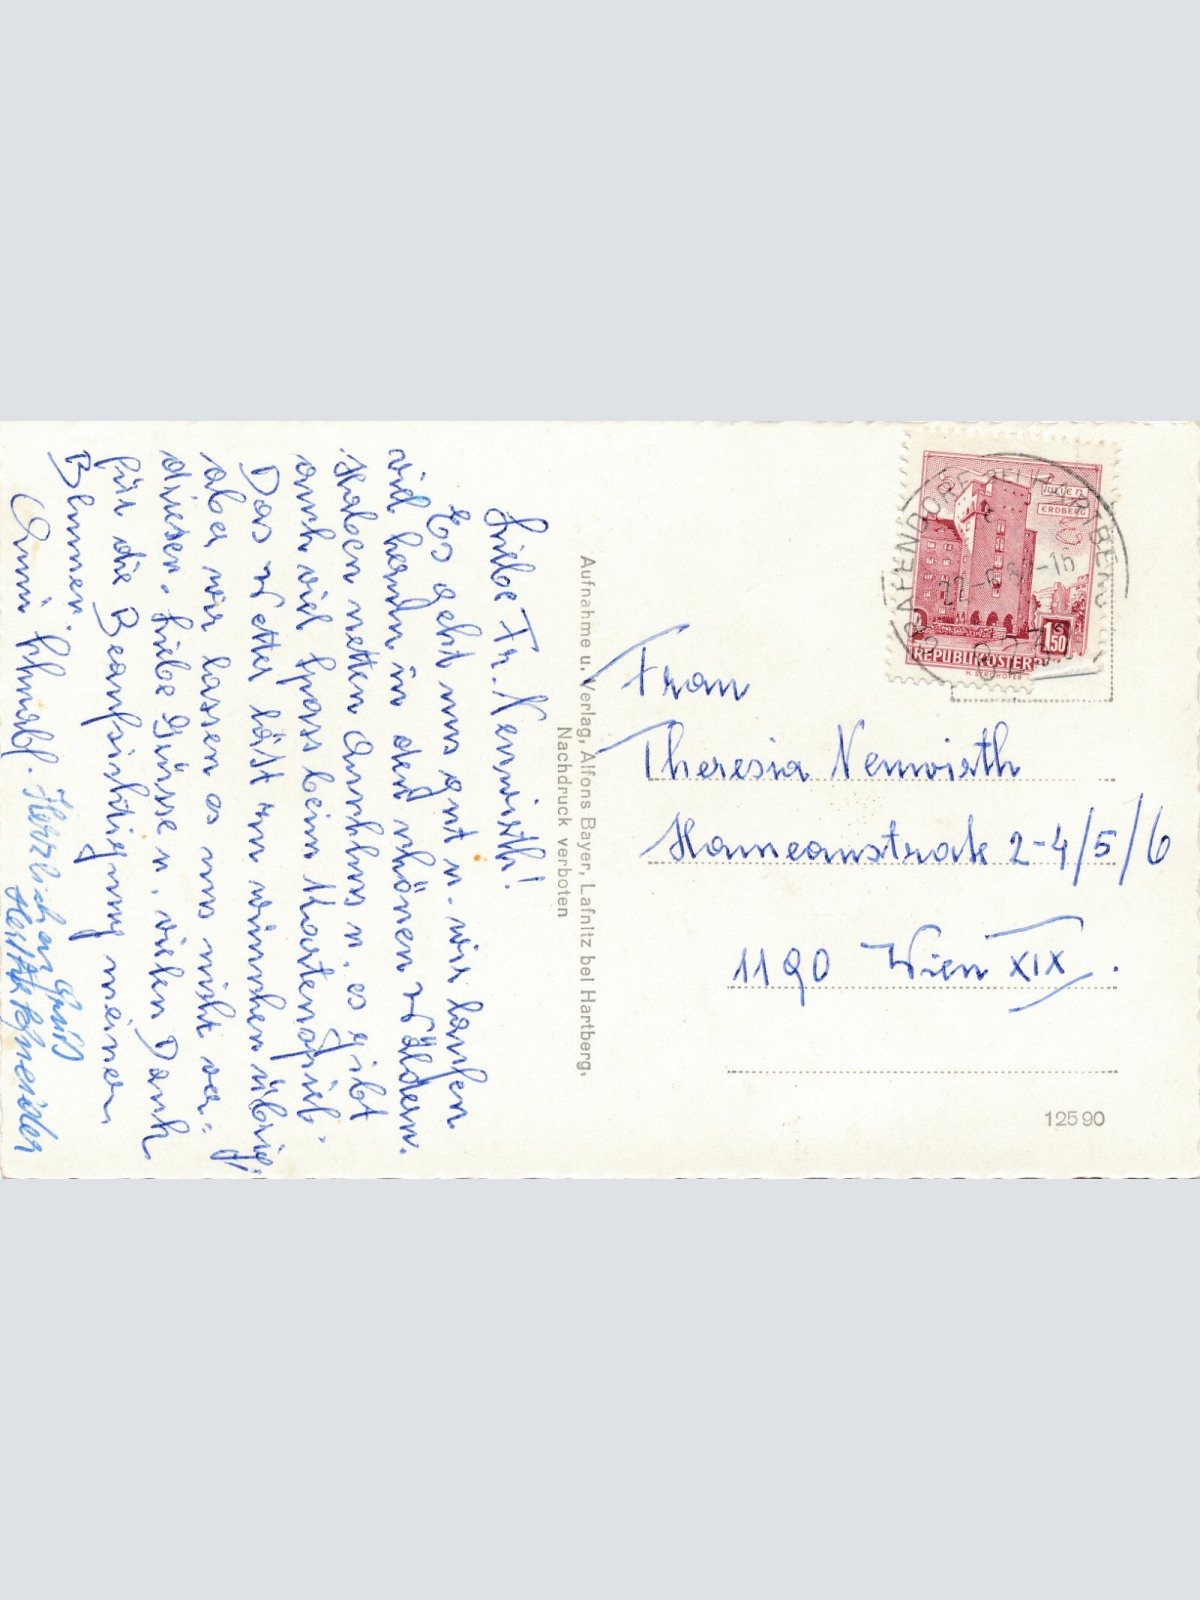 Liebe Fr. Neuwirth!
Es geht uns gut u. wir laufen
viel herum in den schönen Wäldern.
Haben netten Anschluss u. es gibt
auch viel Spass beim Kartenspiel.
Das Wetter läßt zu wünschen übrig,
aber wir lassen es uns nicht ver=
driesen. Liebe Grüsse u. vielen Dank
für die Beaufsichtigung meiner
Blumen.
Herzlichen Gruß
Aufnahme u. Verlag, Alfons Bayer, Lafnitz bei Hartberg,
Nachdruck verboten
WIEN
ERDBERG
1 50
REPUBLIK ÖSTERR
GRAFENDORF BEI HARTBERG
Frau
Theresia Neuwirth
Hameaustraße 2-4/5/6
1190 Wien XIX.
12590